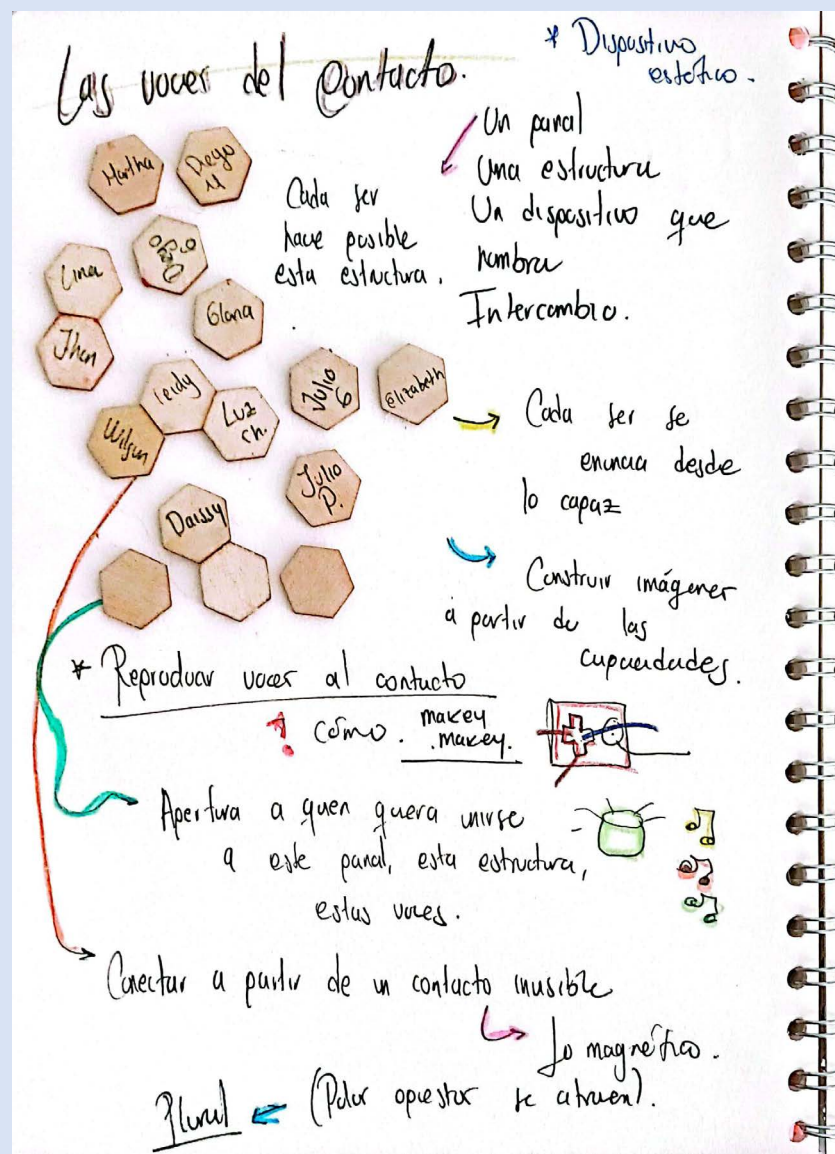 Las voces del contacto.
* Dispositivo
estético.
Martha
Diego
M
Lina
Jhon
Gloria
Leidy
Luz
ch.
Wilson
Julio
G
Elizabeth
Julio
P.
Daissy
Cada ser
hace posible
esta estructura.
Un panal
Una estructura
Un dispositivo que
nombra
Intercambio.
Cada ser se
enuncia desde
lo capaz
Construir imágenes
a partir de las
capacidades.
* Reproducir voces al contacto
cómo. makey
.makey.
Apertura a quien quiera unirse
a este panal, esta estructura,
estas voces.
Conectar a partir de un contacto invisible
Lo magnético.
Plural (Polos opuestos se atraen).